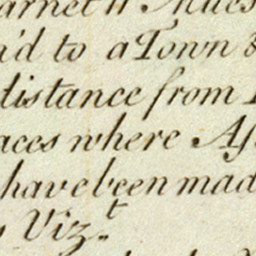 n'd to a Town &
distance from
aces where As
have been mad
Viz.t